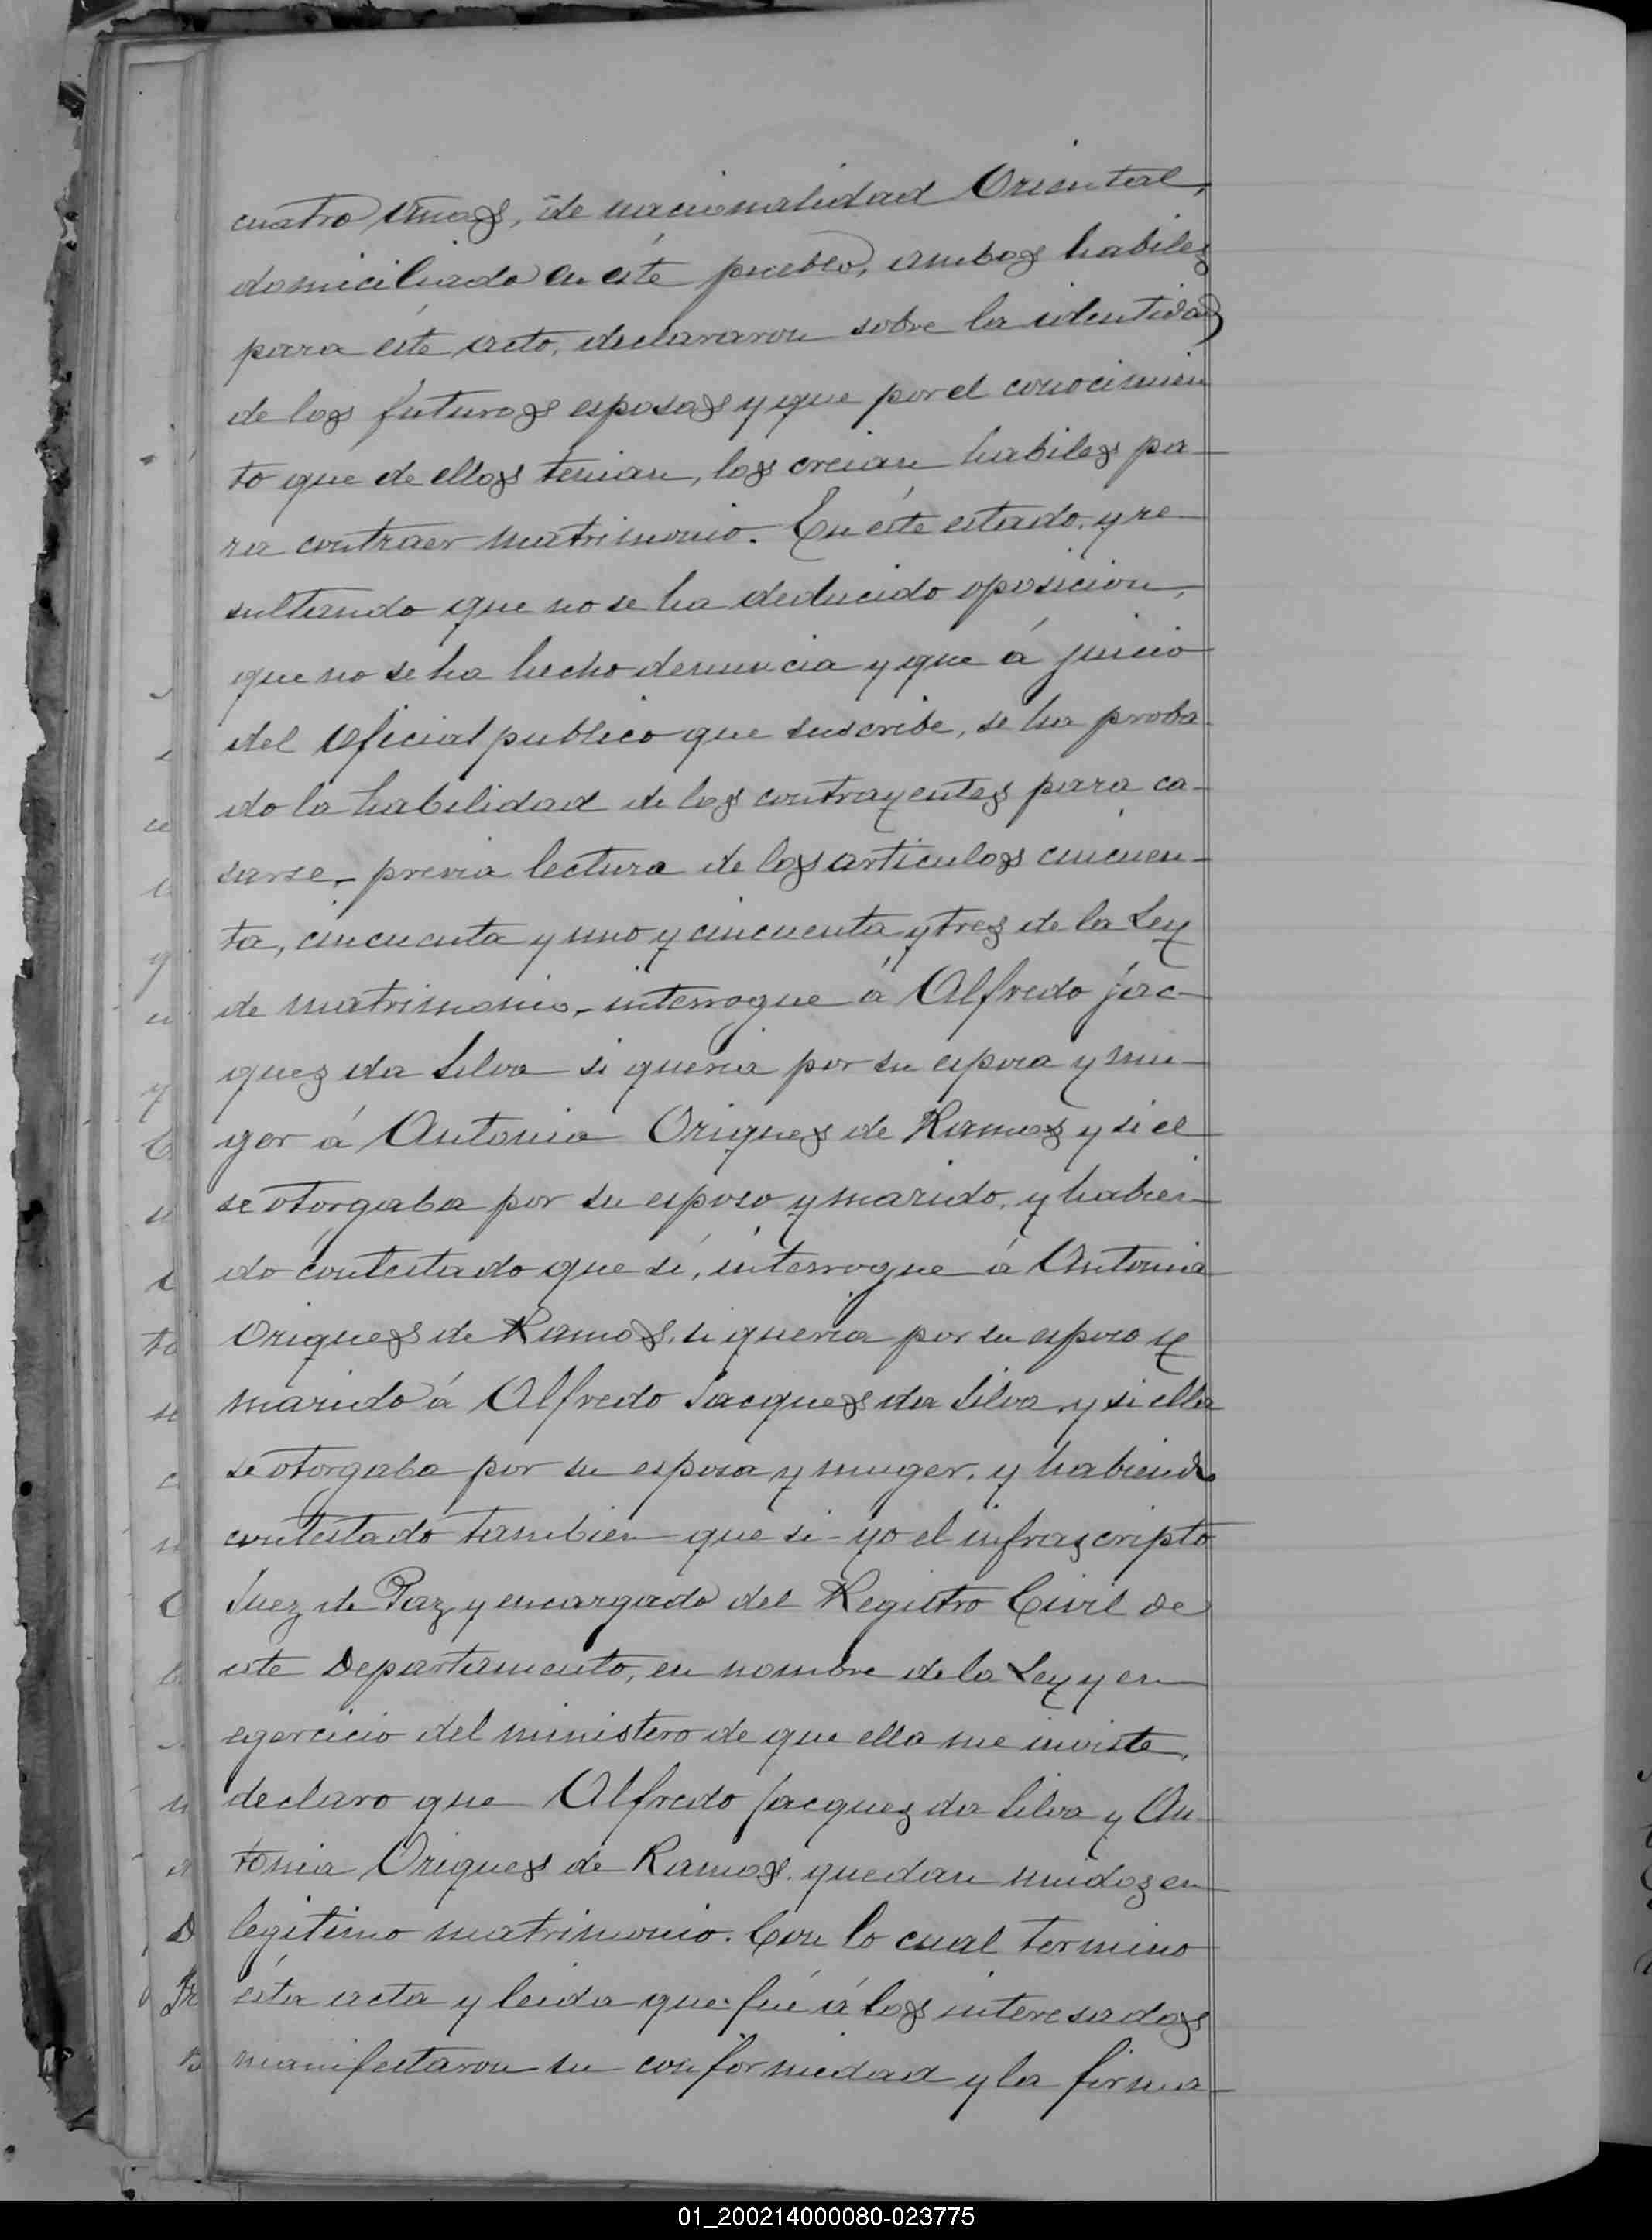 cuatro años, de nacionalidad Oriental,
domiciliado en éste pueblo, ambos habiles
para éste acto, declararon sobre la identidad
de los futuros esposos y que por el conocimien
to que de ellos tenian, los creian habiles pa-
ra contraer matrimonio. En éste estado, y re-
sultando que no se ha deducido oposicion,
que no se ha hecho denuncia y que á juicio
del Oficial publico que suscribe, se ha proba-
do la habilidad de los contrayentes para ca-
sarse,- previa lectura de los articulos cincuen-
ta, cincuenta y uno y cincuenta y tres de la Ley
de matrimonio,- interrogue á Alfredo Jac-
ques da Silva si queria por su esposa y mu-
ger á Antonia Origues de Ramos y si el
se otorgaba por su esposo y marido, y habien-
do contestado que sí, interrogue á Antonia
Origues de Ramos, si queria por su esposo y
marido á Alfredo Jacques da Silva y si ella
se otorgaba por su esposa y muger, y habiendo
contestado tambien que si - yo el infrascripto
Juez de Paz y encargado del Registro Civil de
este Departamento, en nombre de la Ley y en
egercicio del ministero de que ella me inviste,
declaro que Alfredo Jacques da Silva y An-
tonia Origues de Ramos, quedan unidos en
legitimo matrimonio. Con lo cual termino
ésta acta y leida que fué á los interesados
manifestaron su conformidad y la firma-
01_200214000080-023775